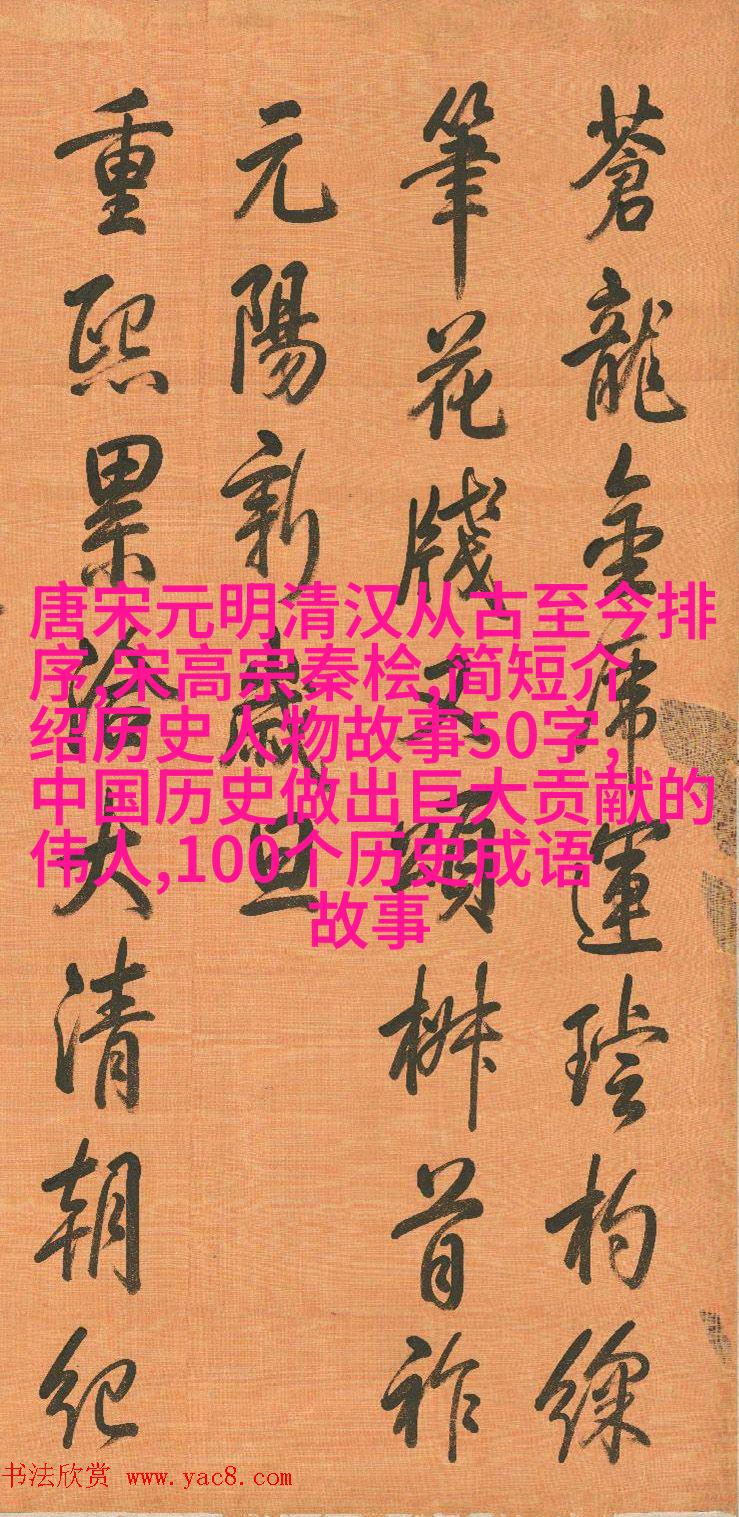 蒼龍金運杓
筆花牋又頌椒首祚
元陽新歲旦
重熙累洽大清朝紀
唐宋元明清汉从古至今排
序,宋高宗秦桧,简短介
绍历史人物故事50字,
中国历史做出巨大贡献的
伟人,100个历史成语
故事
书法欣赏 www.yac8.com